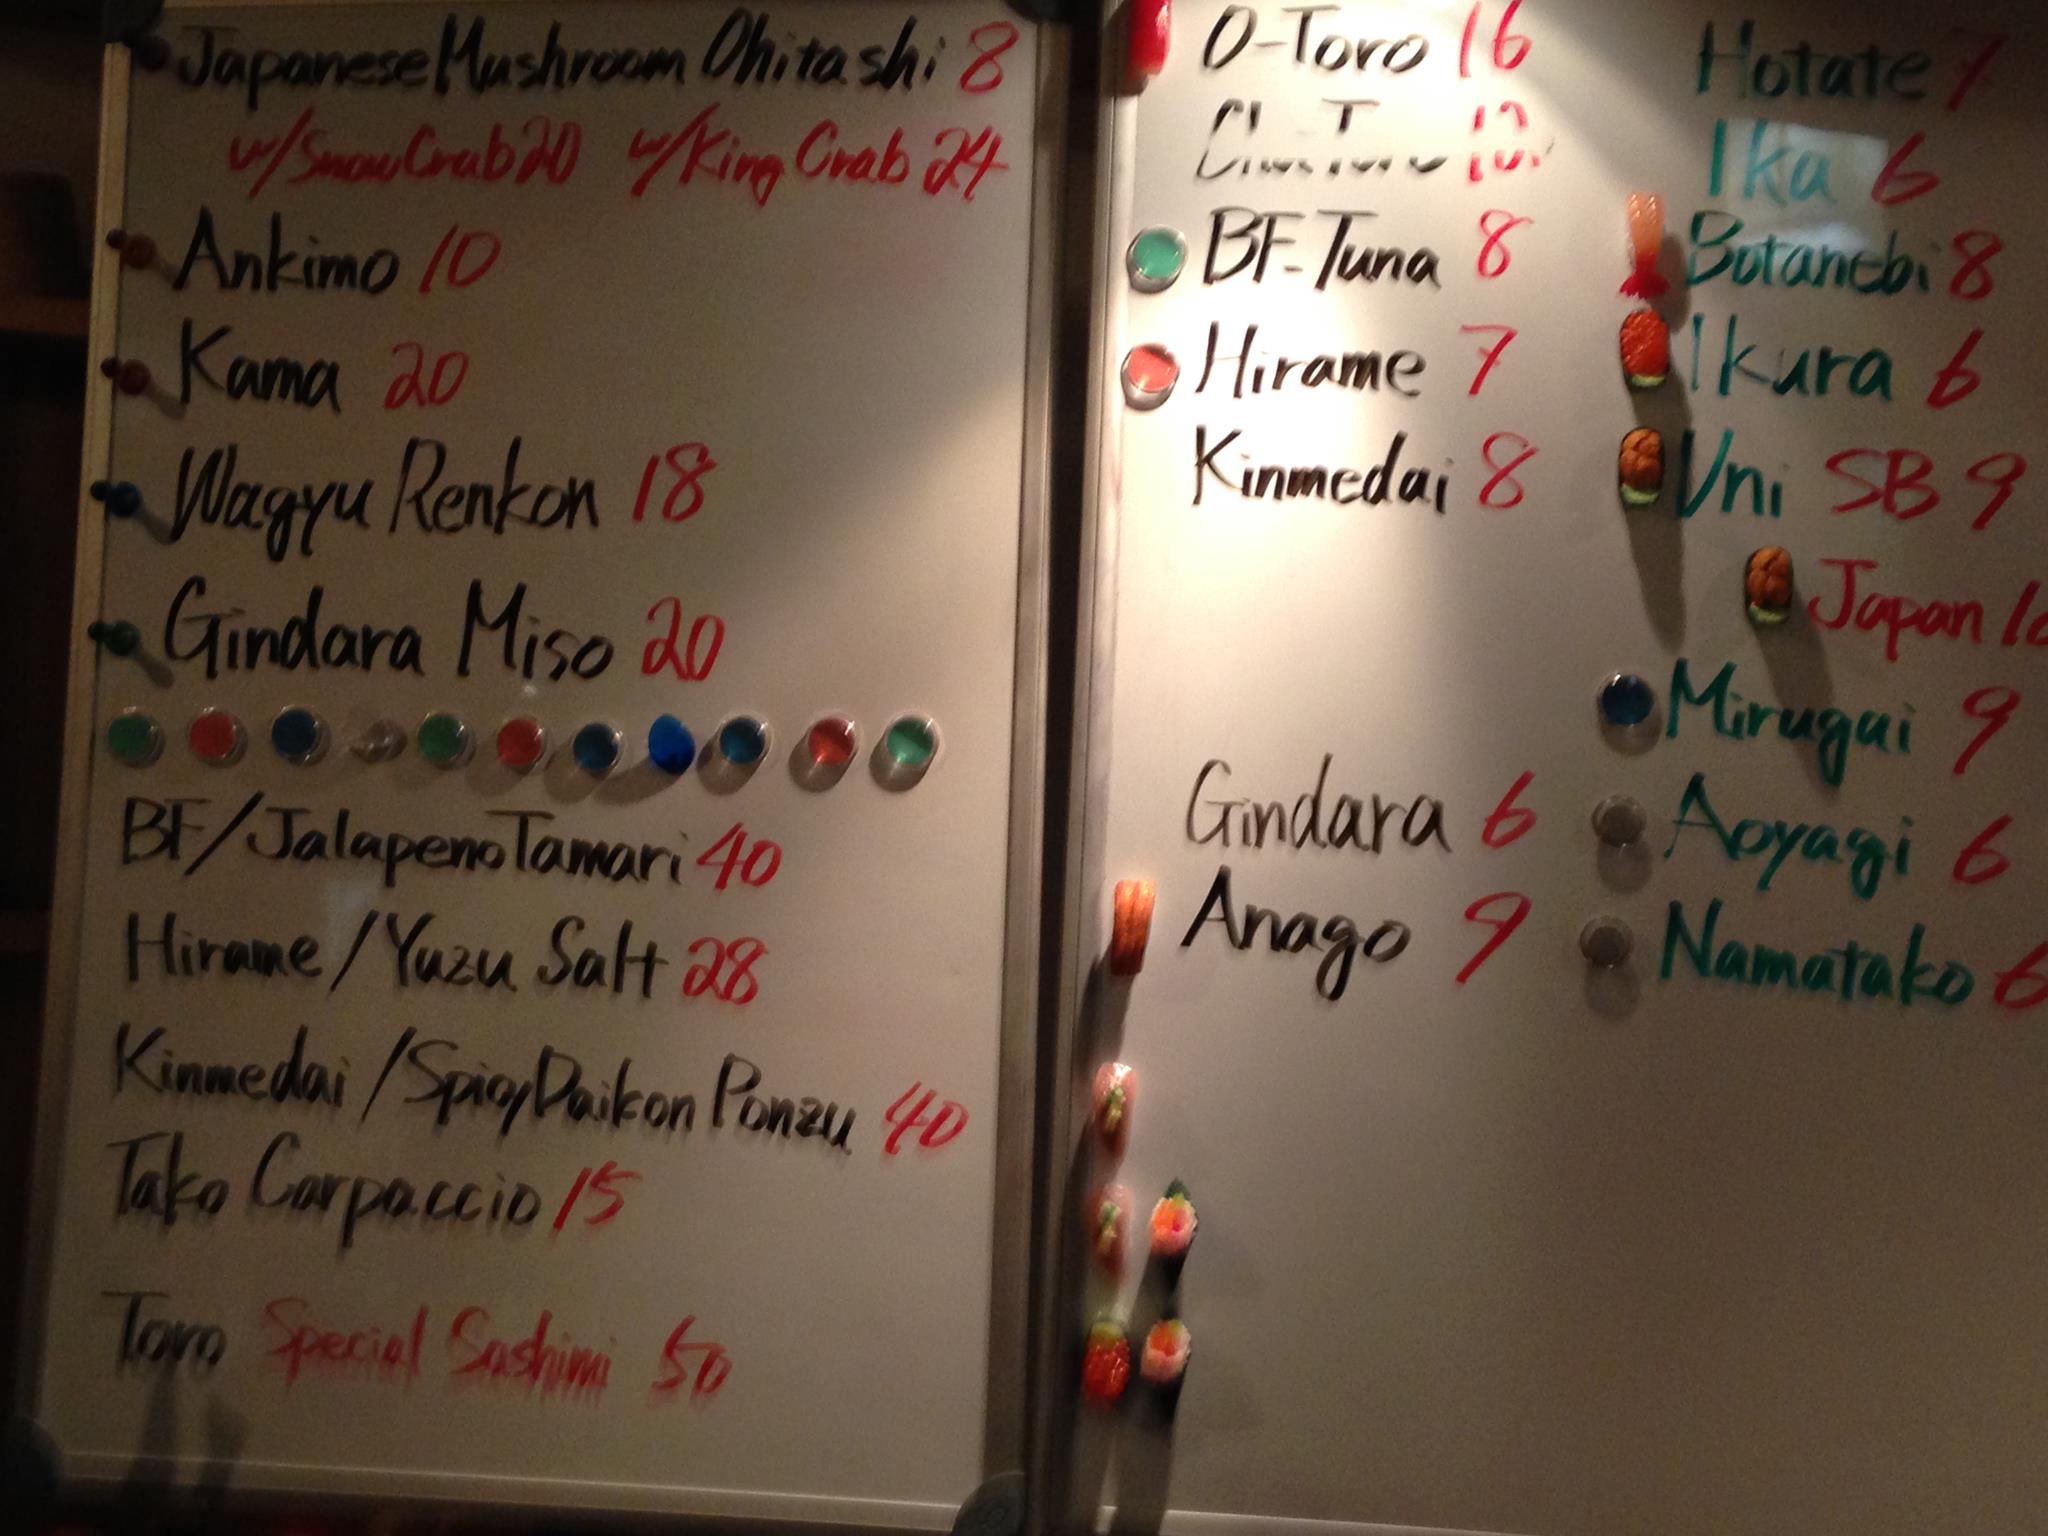 Japanese Mushroom Ohitashi 8
w/Snow Crab 20 w/King Crab 24
Ankimo 10
Kama 20
Wagyu Renkon 18
Gindara Miso 20
BF/Jalapeno Tamari 40
Hirame/Yuzu Salt 28
Kinmedai/Spicy Daikon Ponzu 40
Tako Carpaccio 15
Toro Special Sashimi 50
O-Toro 16
BF-Tuna 8
Hirame 7
Kinmedai 8
Gindara 6
Anago 9
Hotate 7
Ika 6
Botanebi 8
Ikura 6
Uni SB 9
Japan
Mirugai 9
Aoyagi 6
Namatako 6